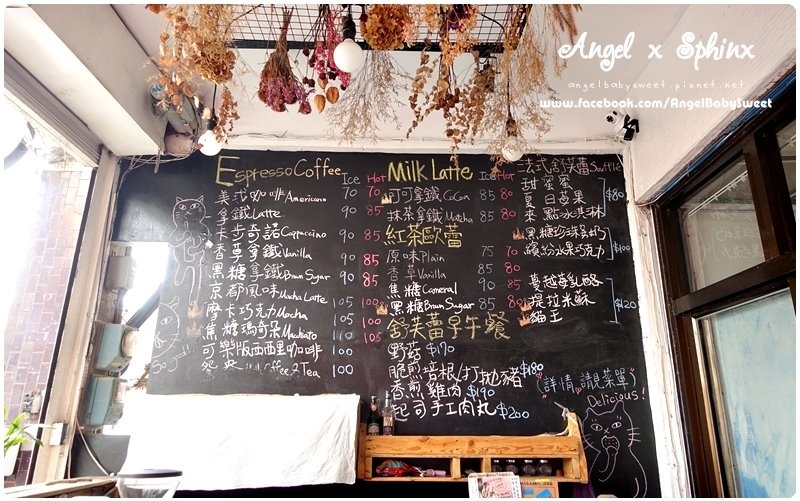 Angel x Sphinx
angelbabysweet.pixnet.net
www.facebook.com/AngelBabySweet
Espresso Coffee Ice Hot
美式咖啡 Americano 70 70
拿鐵 Latte 90 85
卡布奇諾 Cappuccino 90 85
香草拿鐵 Vanilla 90 85
黑糖拿鐵 Brown Sugar 90 85
京都風味 Mocha Latte 105 100
摩卡巧克力 Mocha 105 100
焦糖瑪奇朵 Macchiato 110 105
可樂版西西里咖啡 100
Coffee 2 Tea 100
So good!
Milk Latte Ice Hot
可可拿鐵 CoCoa 85 80
抹茶拿鐵 Matcha 85 80
紅茶歐蕾
原味 Plain 75 70
香草 Vanilla 85 80
焦糖 Carneral 90 85
黑糖 Brown Sugar 85 80
舒芙蕾早午餐
野菇 $170
脆煎培根/打拋豬 $180
香煎雞肉 $190
起司手工肉丸 $200
法式舒芙蕾 Souffle
甜蜜蜜
夏日莓果
來點冰淇淋
$80
黑糖珍珠奶巧
繽紛水果巧克力
$100
蔓越莓乳酪
提拉米蘇
貓王
$120
(詳情請覩菜單)
Delicious!